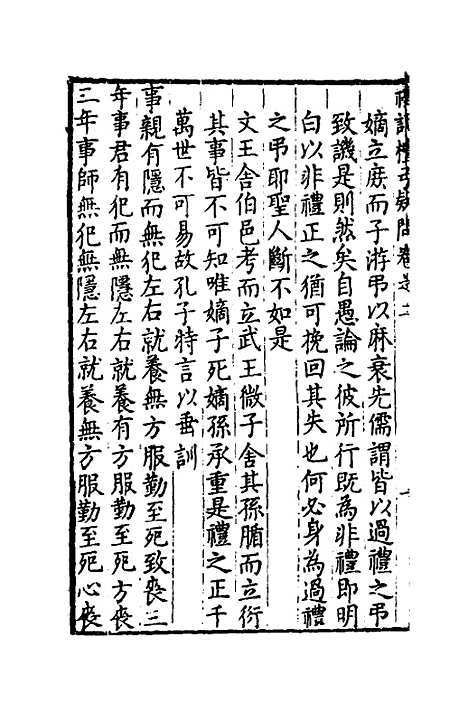 禮記檀弓疑問卷之二
嫡立庶而子游弔以麻衰先儒謂皆以過禮之弔
致譏是則然矣自愚論之彼所行既為非禮即明
白以非禮正之猶可挽回其失也何必身為過禮
之弔耶聖人斷不如是
文王舍伯邑考而立武王微子舍其孫腯而立衍
其事皆不可知唯嫡子死嫡孫承重是禮之正千
萬世不可易故孔子特言以垂訓
事親有隱而無犯左右就養無方服勤至死致喪三
年事君有犯而無隱左右就養有方服勤至死方喪
三年事師無犯無隱左右就養無方服勤至死心喪